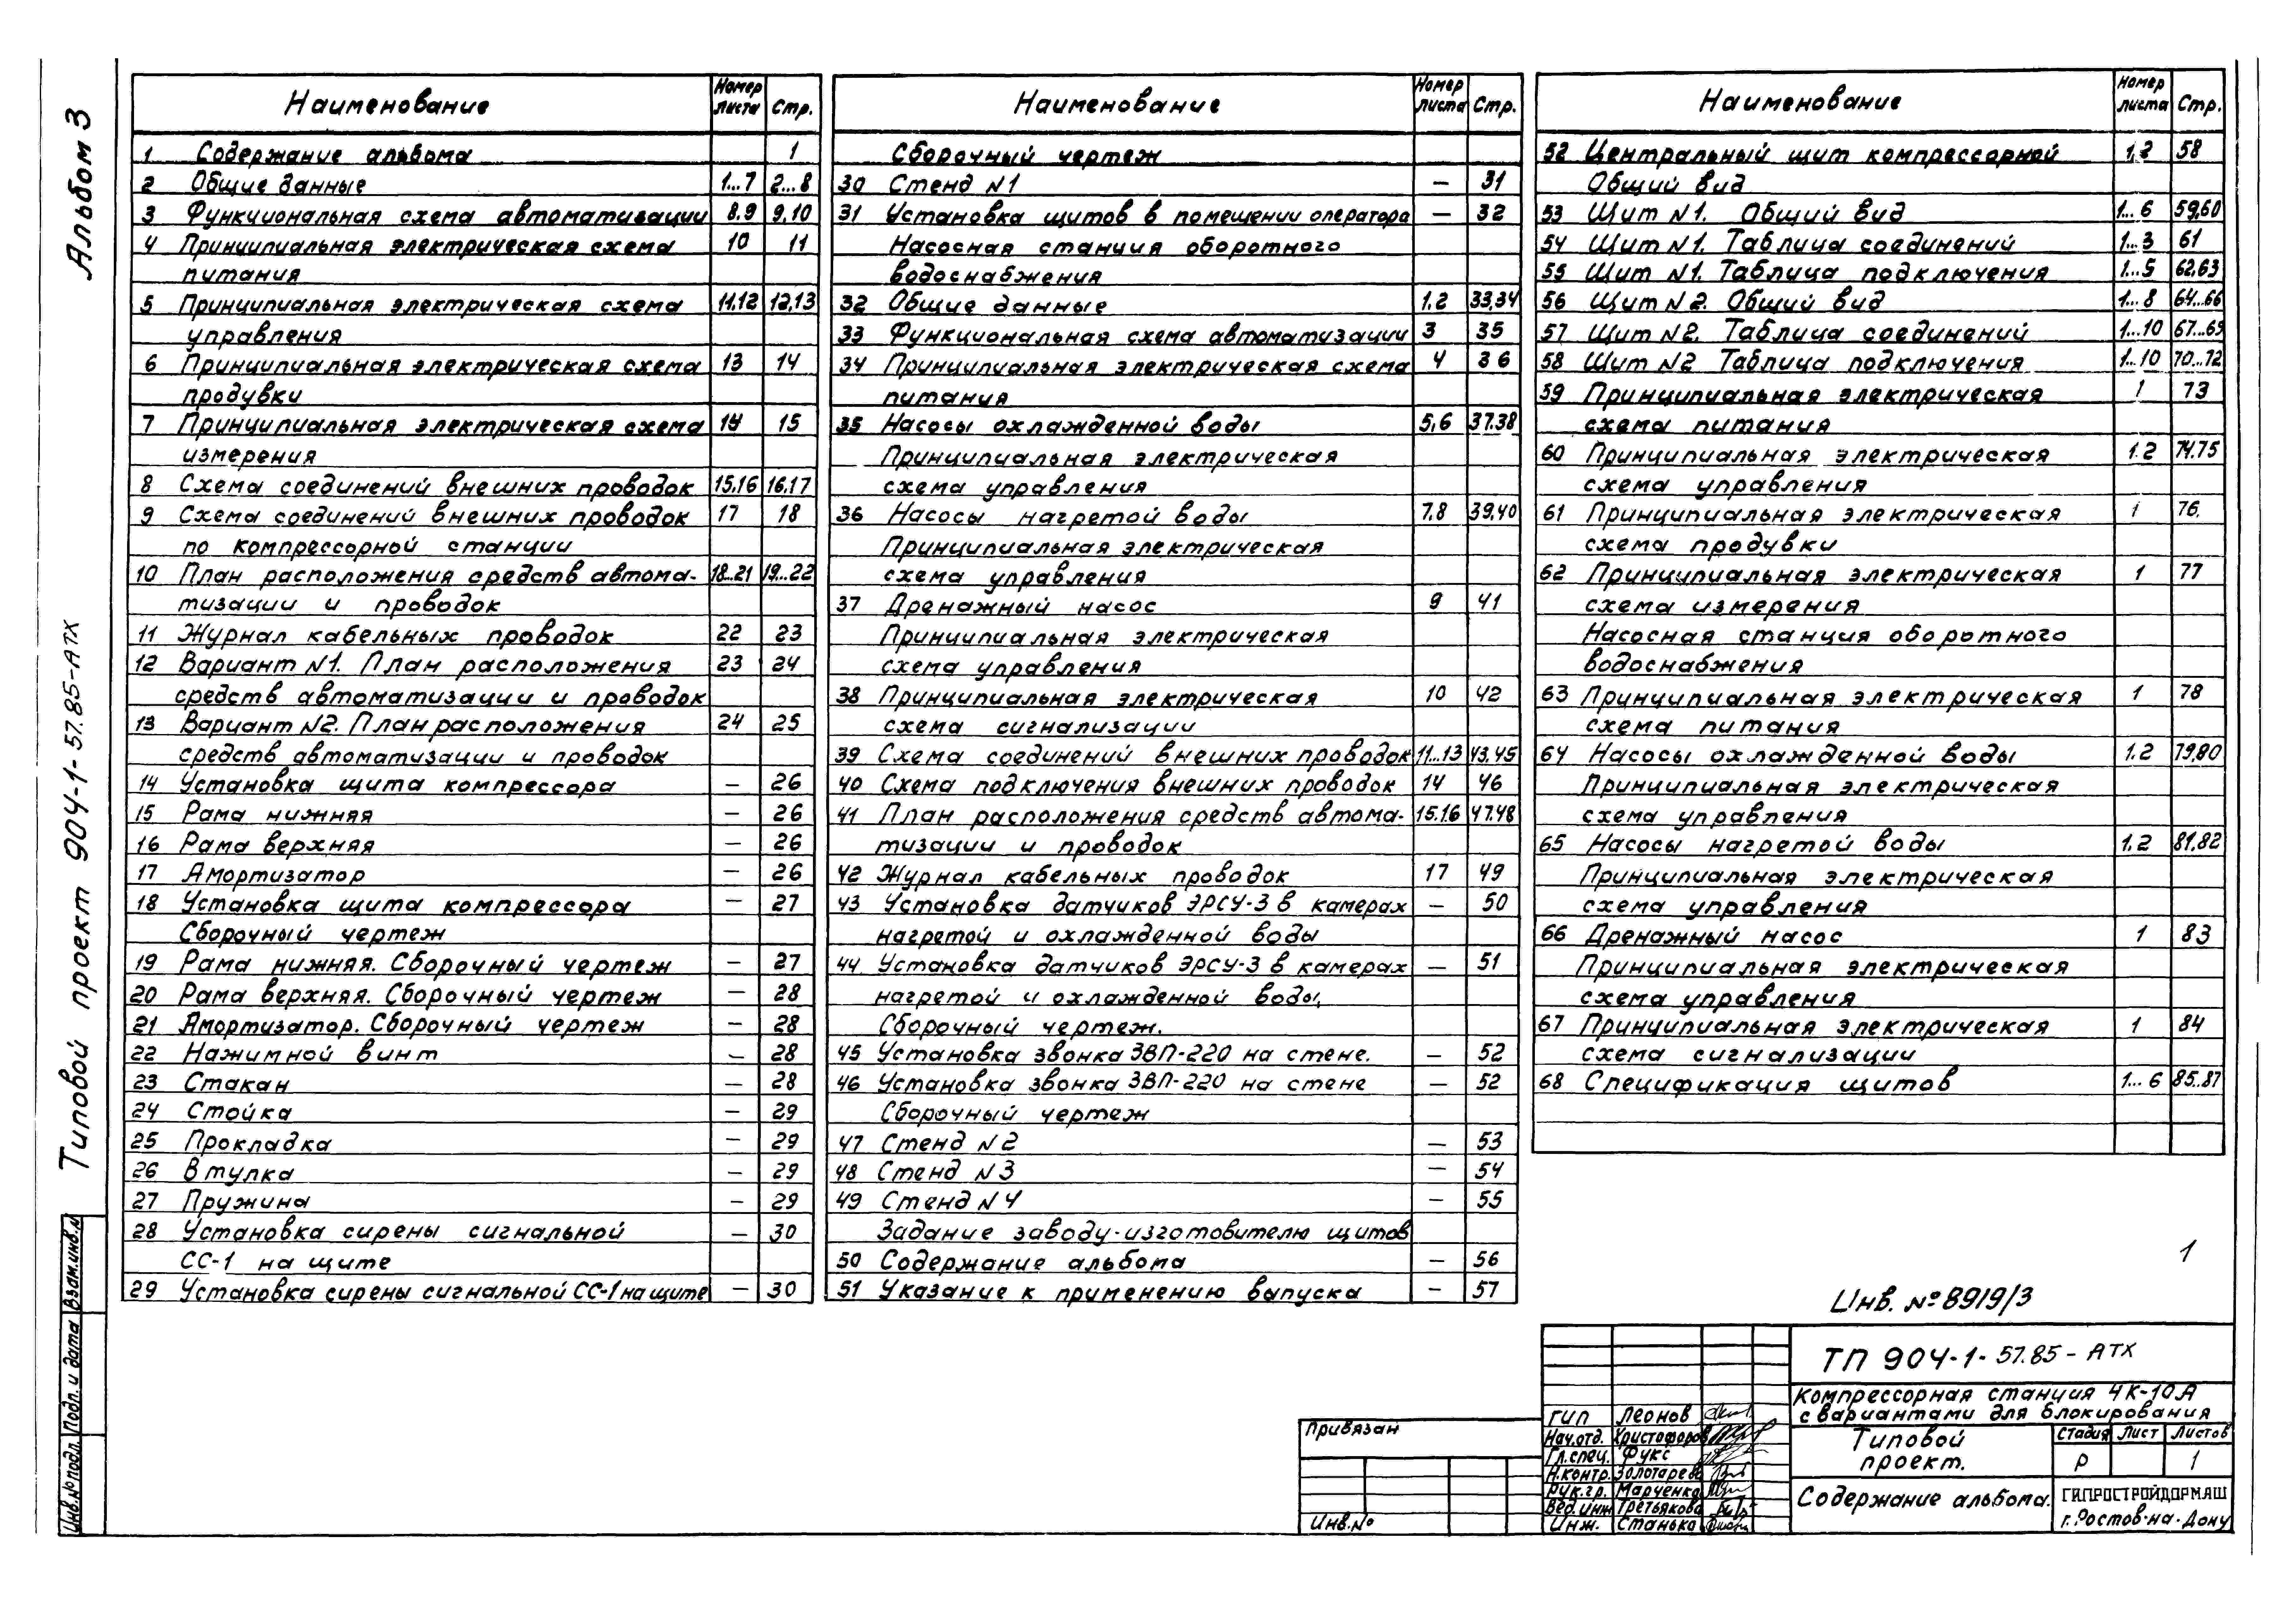 Альбом 3
Типовой проект 904-1-57.85-АТХ
Взам.инв.№
Подп. и дата
Инв.№подл.
Наименование Номер листа Стр.
1 Содержание альбома 1
2 Общие данные 1...7 2...8
3 Функциональная схема автоматизации 8,9 9,10
4 Принципиальная электрическая схема 10 11
питания
5 Принципиальная электрическая схема 11,12 12,13
управления
6 Принципиальная электрическая схема 13 14
продувки
7 Принципиальная электрическая схема 14 15
измерения
8 Схема соединений внешних проводок 15,16 16,17
9 Схема соединений внешних проводок 17 18
по компрессорной станции
10 План расположения средств автома- 18...21 19...22
тизации и проводок
11 Журнал кабельных проводок 22 23
12 Вариант N1. План расположения 23 24
средств автоматизации и проводок
13 Вариант N2. План расположения 24 25
средств автоматизации и проводок
14 Установка щита компрессора — 26
15 Рама нижняя — 26
16 Рама верхняя — 26
17 Амортизатор — 26
18 Установка щита компрессора — 27
Сборочный чертеж
19 Рама нижняя. Сборочный чертеж — 27
20 Рама верхняя. Сборочный чертеж — 28
21 Амортизатор. Сборочный чертеж — 28
22 Нажимной винт — 28
23 Стакан — 28
24 Стойка — 29
25 Прокладка — 29
26 Втулка — 29
27 Пружина — 29
28 Установка сирены сигнальной — 30
СС-1 на щите
29 Установка сирены сигнальной СС-1 на щите — 30
Наименование Номер листа Стр.
Сборочный чертеж
30 Стенд N1 — 31
31 Установка щитов в помещении оператора — 32
Насосная станция оборотного
водоснабжения
32 Общие данные 1,2 33,34
33 Функциональная схема автоматизации 3 35
34 Принципиальная электрическая схема 4 36
питания
35 Насосы охлажденной воды 5,6 37,38
Принципиальная электрическая
схема управления
36 Насосы нагретой воды 7,8 39,40
Принципиальная электрическая
схема управления
37 Дренажный насос 9 41
Принципиальная электрическая
схема управления
38 Принципиальная электрическая 10 42
схема сигнализации
39 Схема соединений внешних проводок 11...13 43,45
40 Схема подключения внешних проводок 14 46
41 План расположения средств автома- 15,16 47,48
тизации и проводок
42 Журнал кабельных проводок 17 49
43 Установка датчиков ЭРСУ-3 в камерах — 50
нагретой и охлажденной воды
44 Установка датчиков ЭРСУ-3 в камерах — 51
нагретой и охлажденной воды,
Сборочный чертеж.
45 Установка звонка ЗВП-220 на стене. — 52
46 Установка звонка ЗВП-220 на стене — 52
Сборочный чертеж
47 Стенд N2 — 53
48 Стенд N3 — 54
49 Стенд N4 — 55
Задание заводу-изготовителю щитов
50 Содержание альбома — 56
51 Указание к применению выпуска — 57
Наименование Номер листа Стр.
52 Центральный щит компрессорной 1,2 58
Общий вид
53 Щит N1. Общий вид 1...6 59,60
54 Щит N1. Таблица соединений 1...3 61
55 Щит N1. Таблица подключения 1...5 62,63
56 Щит N2. Общий вид 1...8 64...66
57 Щит N2. Таблица соединений 1...10 67...69
58 Щит N2 Таблица подключения 1...10 70...72
59 Принципиальная электрическая 1 73
схема питания
60 Принципиальная электрическая 1.2 74,75
схема управления
61 Принципиальная электрическая 1 76.
схема продувки
62 Принципиальная электрическая 1 77
схема измерения
Насосная станция оборотного
водоснабжения
63 Принципиальная электрическая 1 78
схема питания
64 Насосы охлажденной воды 1.2 79,80
Принципиальная электрическая
схема управления
65 Насосы нагретой воды 1.2 81,82
Принципиальная электрическая
схема управления
66 Дренажный насос 1 83
Принципиальная электрическая
схема управления
67 Принципиальная электрическая 1 84
схема сигнализации
68 Спецификация щитов 1...6 85..87
1
Инв. №8919/3
ТП 904-1-57.85-АТХ
Компрессорная станция 4К-10А
с вариантами для блокирования
Типовой проект.
Стадия Лист Листов
Р 1
Содержание альбома.
ГИПРОСТРОЙДОРМАШ
г.Ростов-на-Дону
ГИП Леонов
Нач.отд. Христофоров
Гл.спец. Фукс
Н.контр. Золотарева
Рук.гр. Марченко
Вед.инж Третьякова
Инж. Станько
Привязан
Инв.№